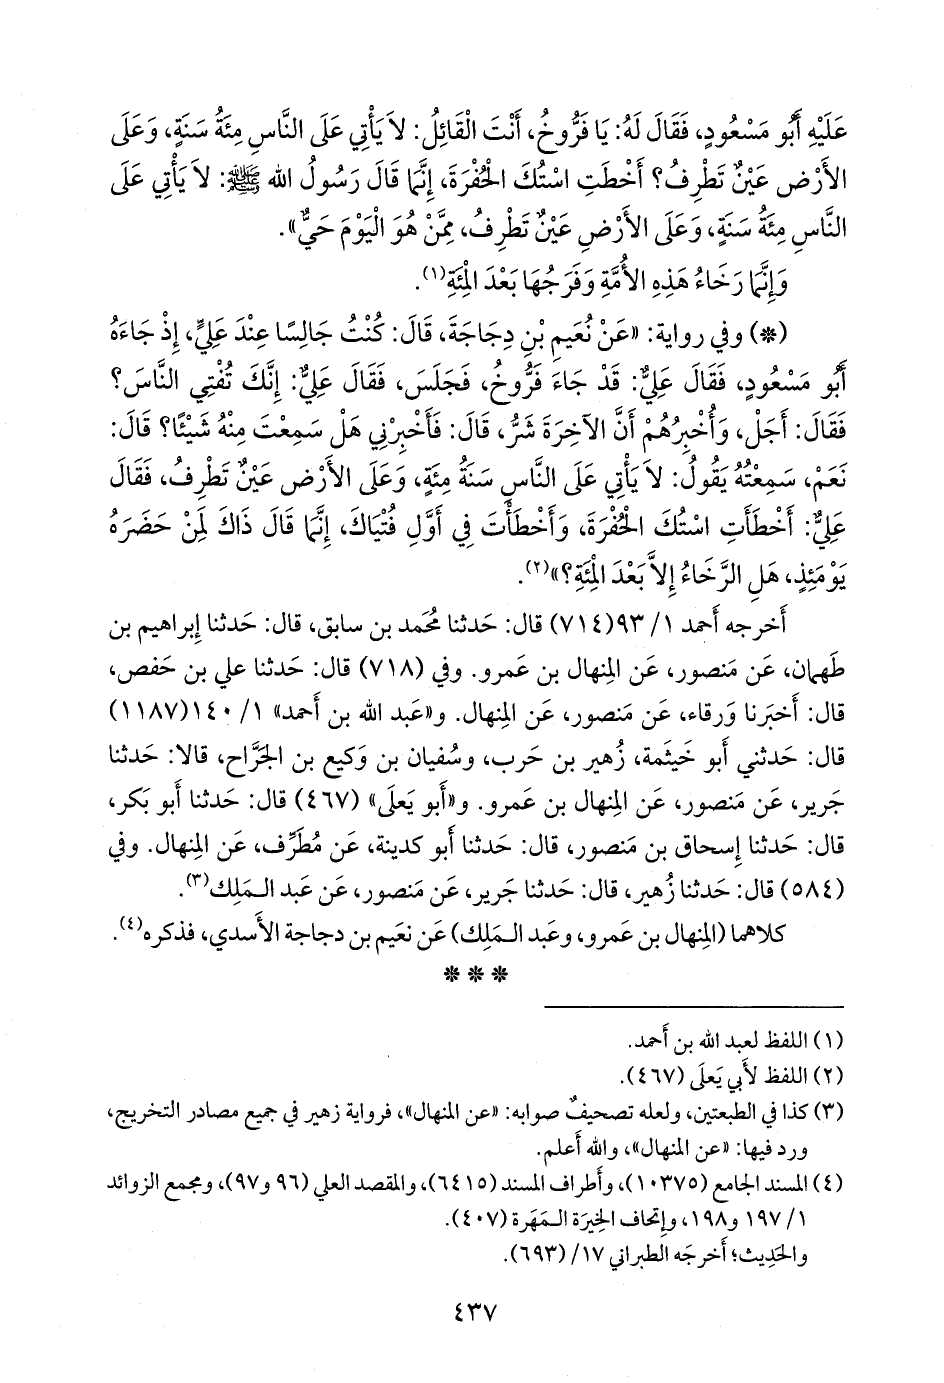 عَلَيْهِ أَبُو مَسْعُودٍ، فَقَالَ لَهُ: يَا فَرُّوخُ، أَنْتَ الْقَائِلُ: لاَ يَأْتِي عَلَى النَّاسِ مِئَةُ سَنَةٍ، وَعَلَى
الأَرْضِ عَيْنٌ تَطْرِفُ؟ أَخْطَتِ اسْتُكَ الْحُفْرَةَ، إِنَّمَا قَالَ رَسُولُ الله ﷺ: لاَ يَأْتِي عَلَى
النَّاسِ مِئَةُ سَنَةٍ، وَعَلَى الأَرْضِ عَيْنٌ تَطْرِفُ، مِمَّنْ هُوَ الْيَوْمَ حَيٌّ».
وَإِنَّمَا رَخَاءُ هَذِهِ الأُمَّةِ وَفَرَجُهَا بَعْدَ الْمِئَةِ(١).
(*) وفي رواية: «عَنْ نُعَيمِ بْنِ دِجَاجَةَ، قَالَ: كُنْتُ جَالِسًا عِنْدَ عَلِيٍّ، إِذْ جَاءَهُ
أَبُو مَسْعُودٍ، فَقَالَ عَلِيٌّ: قَدْ جَاءَ فَرُّوخُ، فَجَلَسَ، فَقَالَ عَلِيٌّ: إِنَّكَ تُفْتِي النَّاسَ؟
فَقَالَ: أَجَلْ، وَأُخْبِرُهُمْ أَنَّ الآخِرَةَ شَرٌّ، قَالَ: فَأَخْبِرْنِي هَلْ سَمِعْتَ مِنْهُ شَيْئًا؟ قَالَ:
نَعَمْ، سَمِعْتُهُ يَقُولُ: لاَ يَأْتِي عَلَى النَّاسِ سَنَةُ مِئَةٍ، وَعَلَى الأَرْضِ عَيْنٌ تَطْرِفُ، فَقَالَ
عَلِيٌّ: أَخْطَأَتِ اسْتُكَ الْحُفْرَةَ، وَأَخْطَأْتَ فِي أَوَّلِ فُتْيَاكَ، إِنَّمَا قَالَ ذَاكَ لِمَنْ حَضَرَهُ
يَوْمَئِذٍ، هَلِ الرَّخَاءُ إِلاَّ بَعْدَ الْمِئَةِ؟»(٢).
أَخرجه أَحمد ١/ ٩٣(٧١٤) قال: حَدثنا مُحَمد بن سابق، قال: حَدثنا إِبراهيم بن
طَهمان، عَن مَنصور، عَن المِنهال بن عَمرو. وفي (٧١٨) قال: حَدثنا علي بن حَفص،
قال: أَخبَرنا وَرقاء، عَن مَنصور، عَن المِنهال. و«عَبد الله بن أَحمد» ١/ ١٤٠(١١٨٧)
قال: حَدثني أَبو خَيثمة، زُهير بن حَرب، وسُفيان بن وَكيع بن الجَرَّاح، قالا: حَدثنا
جَرير، عَن مَنصور، عَن المِنهال بن عَمرو. و«أَبو يَعلَى» (٤٦٧) قال: حَدثنا أَبو بَكر،
قال: حَدثنا إِسحاق بن مَنصور، قال: حَدثنا أَبو كدينة، عَن مُطَرِّف، عَن المِنهال. وفي
(٥٨٤) قال: حَدثنا زُهير، قال: حَدثنا جَرير، عَن مَنصور، عَن عَبد الـمَلِك(٣).
كلاهما (المِنهال بن عَمرو، وعَبد الـمَلِك) عَن نعَيم بن دجاجة الأَسدي، فذكره(٤).
* * *
(١) اللفظ لعبد الله بن أَحمد.
(٢) اللفظ لأَبي يَعلَى (٤٦٧).
(٣) كذا في الطبعتين، ولعله تصحيفٌ صوابه: «عن المنهال»، فرواية زهير في جميع مصادر التخريج،
ورد فيها: «عن المنهال»، والله أَعلم.
(٤) المسند الجامع (١٠٣٧٥)، وأَطراف المسند (٦٤١٥)، والمقصد العلي (٩٦ و٩٧)، ومجمع الزوائد
١/ ١٩٧ و١٩٨، وإِتحاف الخِيرَة الـمَهَرة (٤٠٧).
والحَدِيث؛ أَخرجَه الطبراني ١٧/ (٦٩٣).
٤٣٧